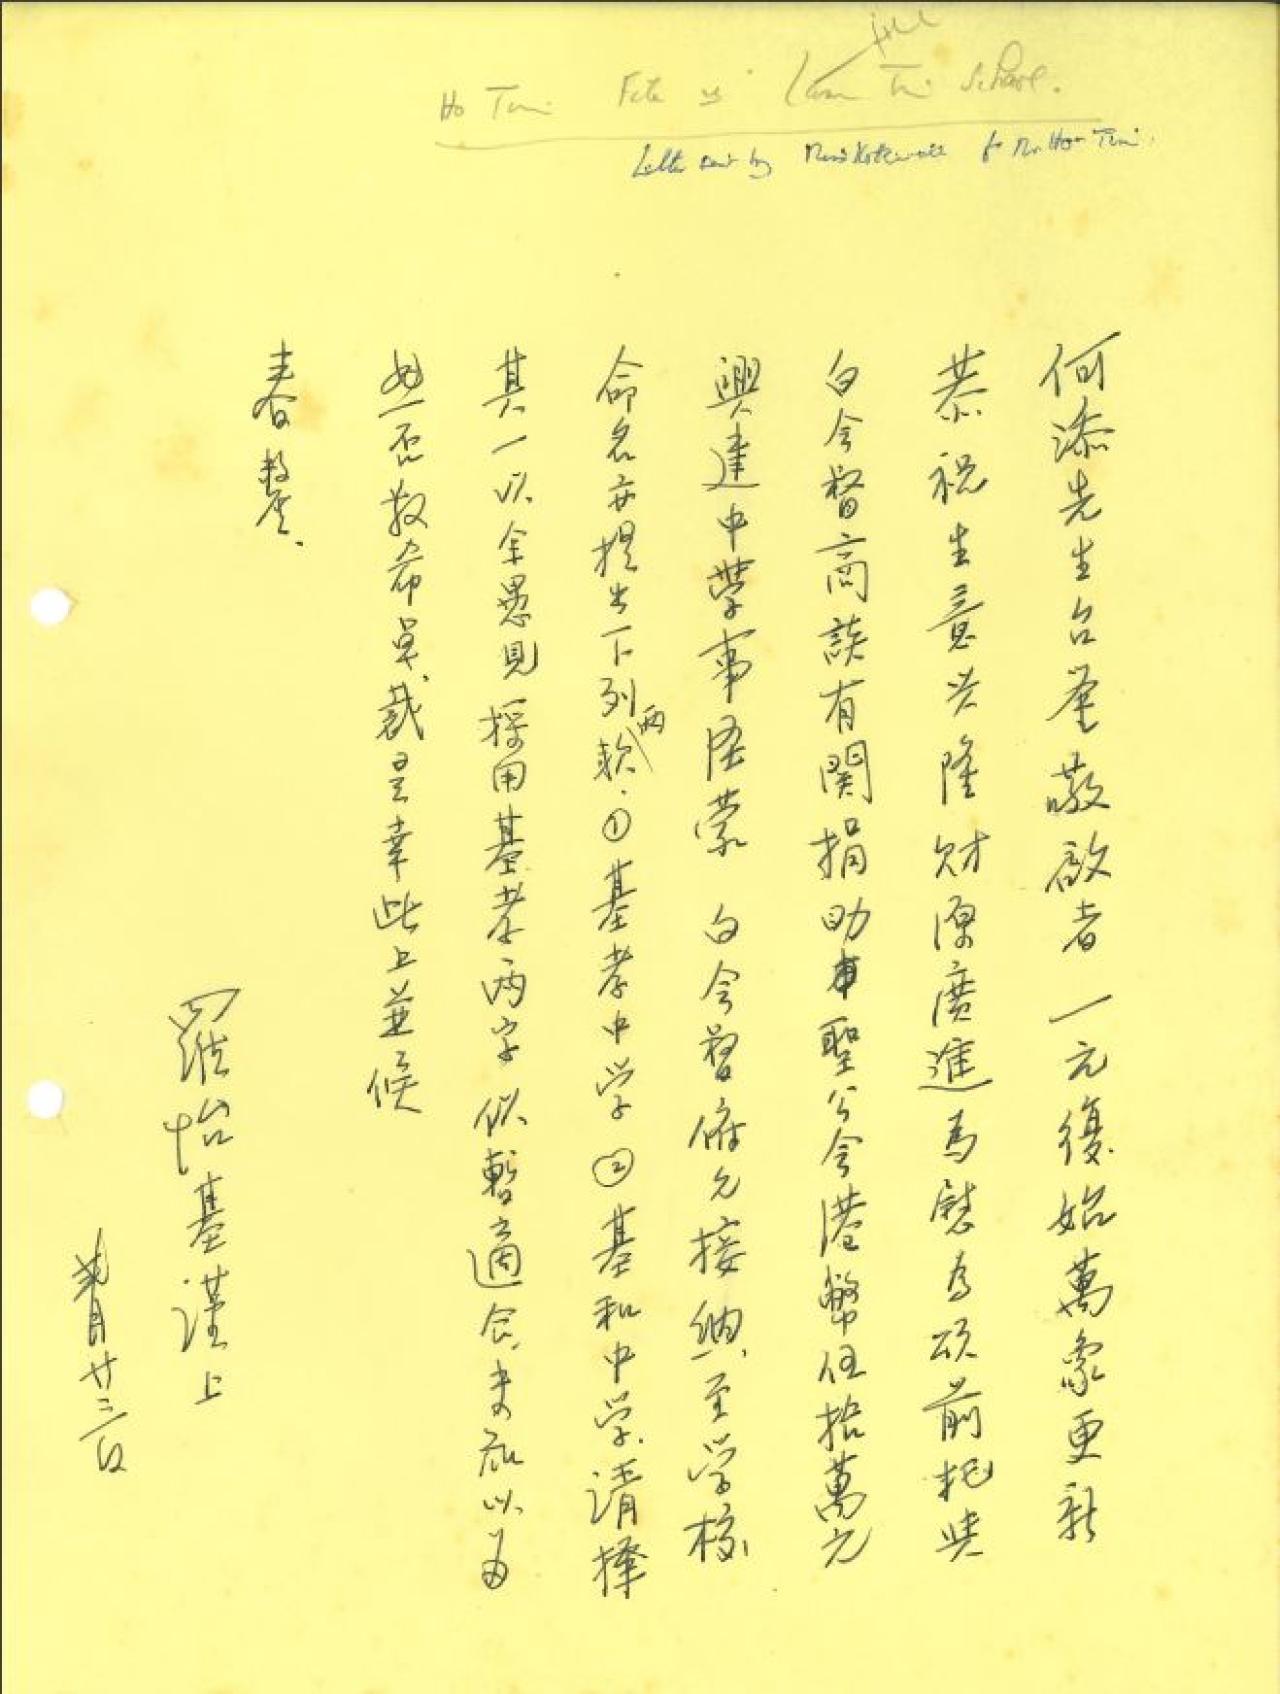 Ho Tim File is Lam Tin School.
file
Letter sent by Miss Kotewall to Mr. Ho Tim.
何添先生台鑒敬啟者 一元復始萬象更新
恭祝生意兴隆財源廣進為慰為頌前托與
白会督商談有関捐助聖公会港幣伍拾萬元
興建中學事經蒙 白会督俯允接納、至学校
命名亦提出下列兩款、①基孝中学②基和中学、請擇
其一以余愚見採用基孝兩字似暫適合、未知以為
然否敬希卓裁是幸此上並候
春釐、
羅怡基謹上
月廿三日